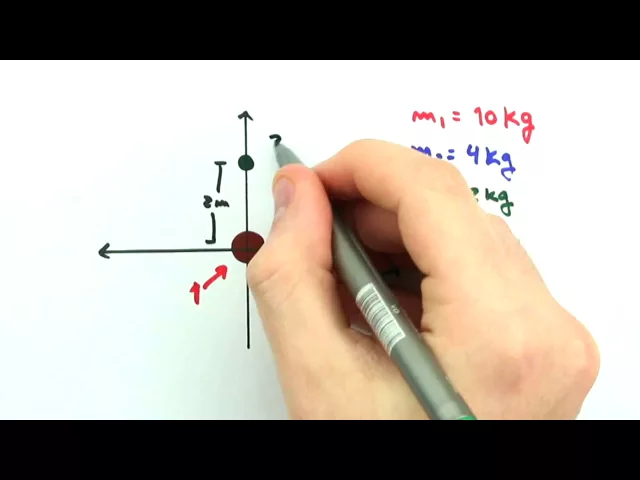 m₁ = 10 kg
= 4 kg
kg
2m
1